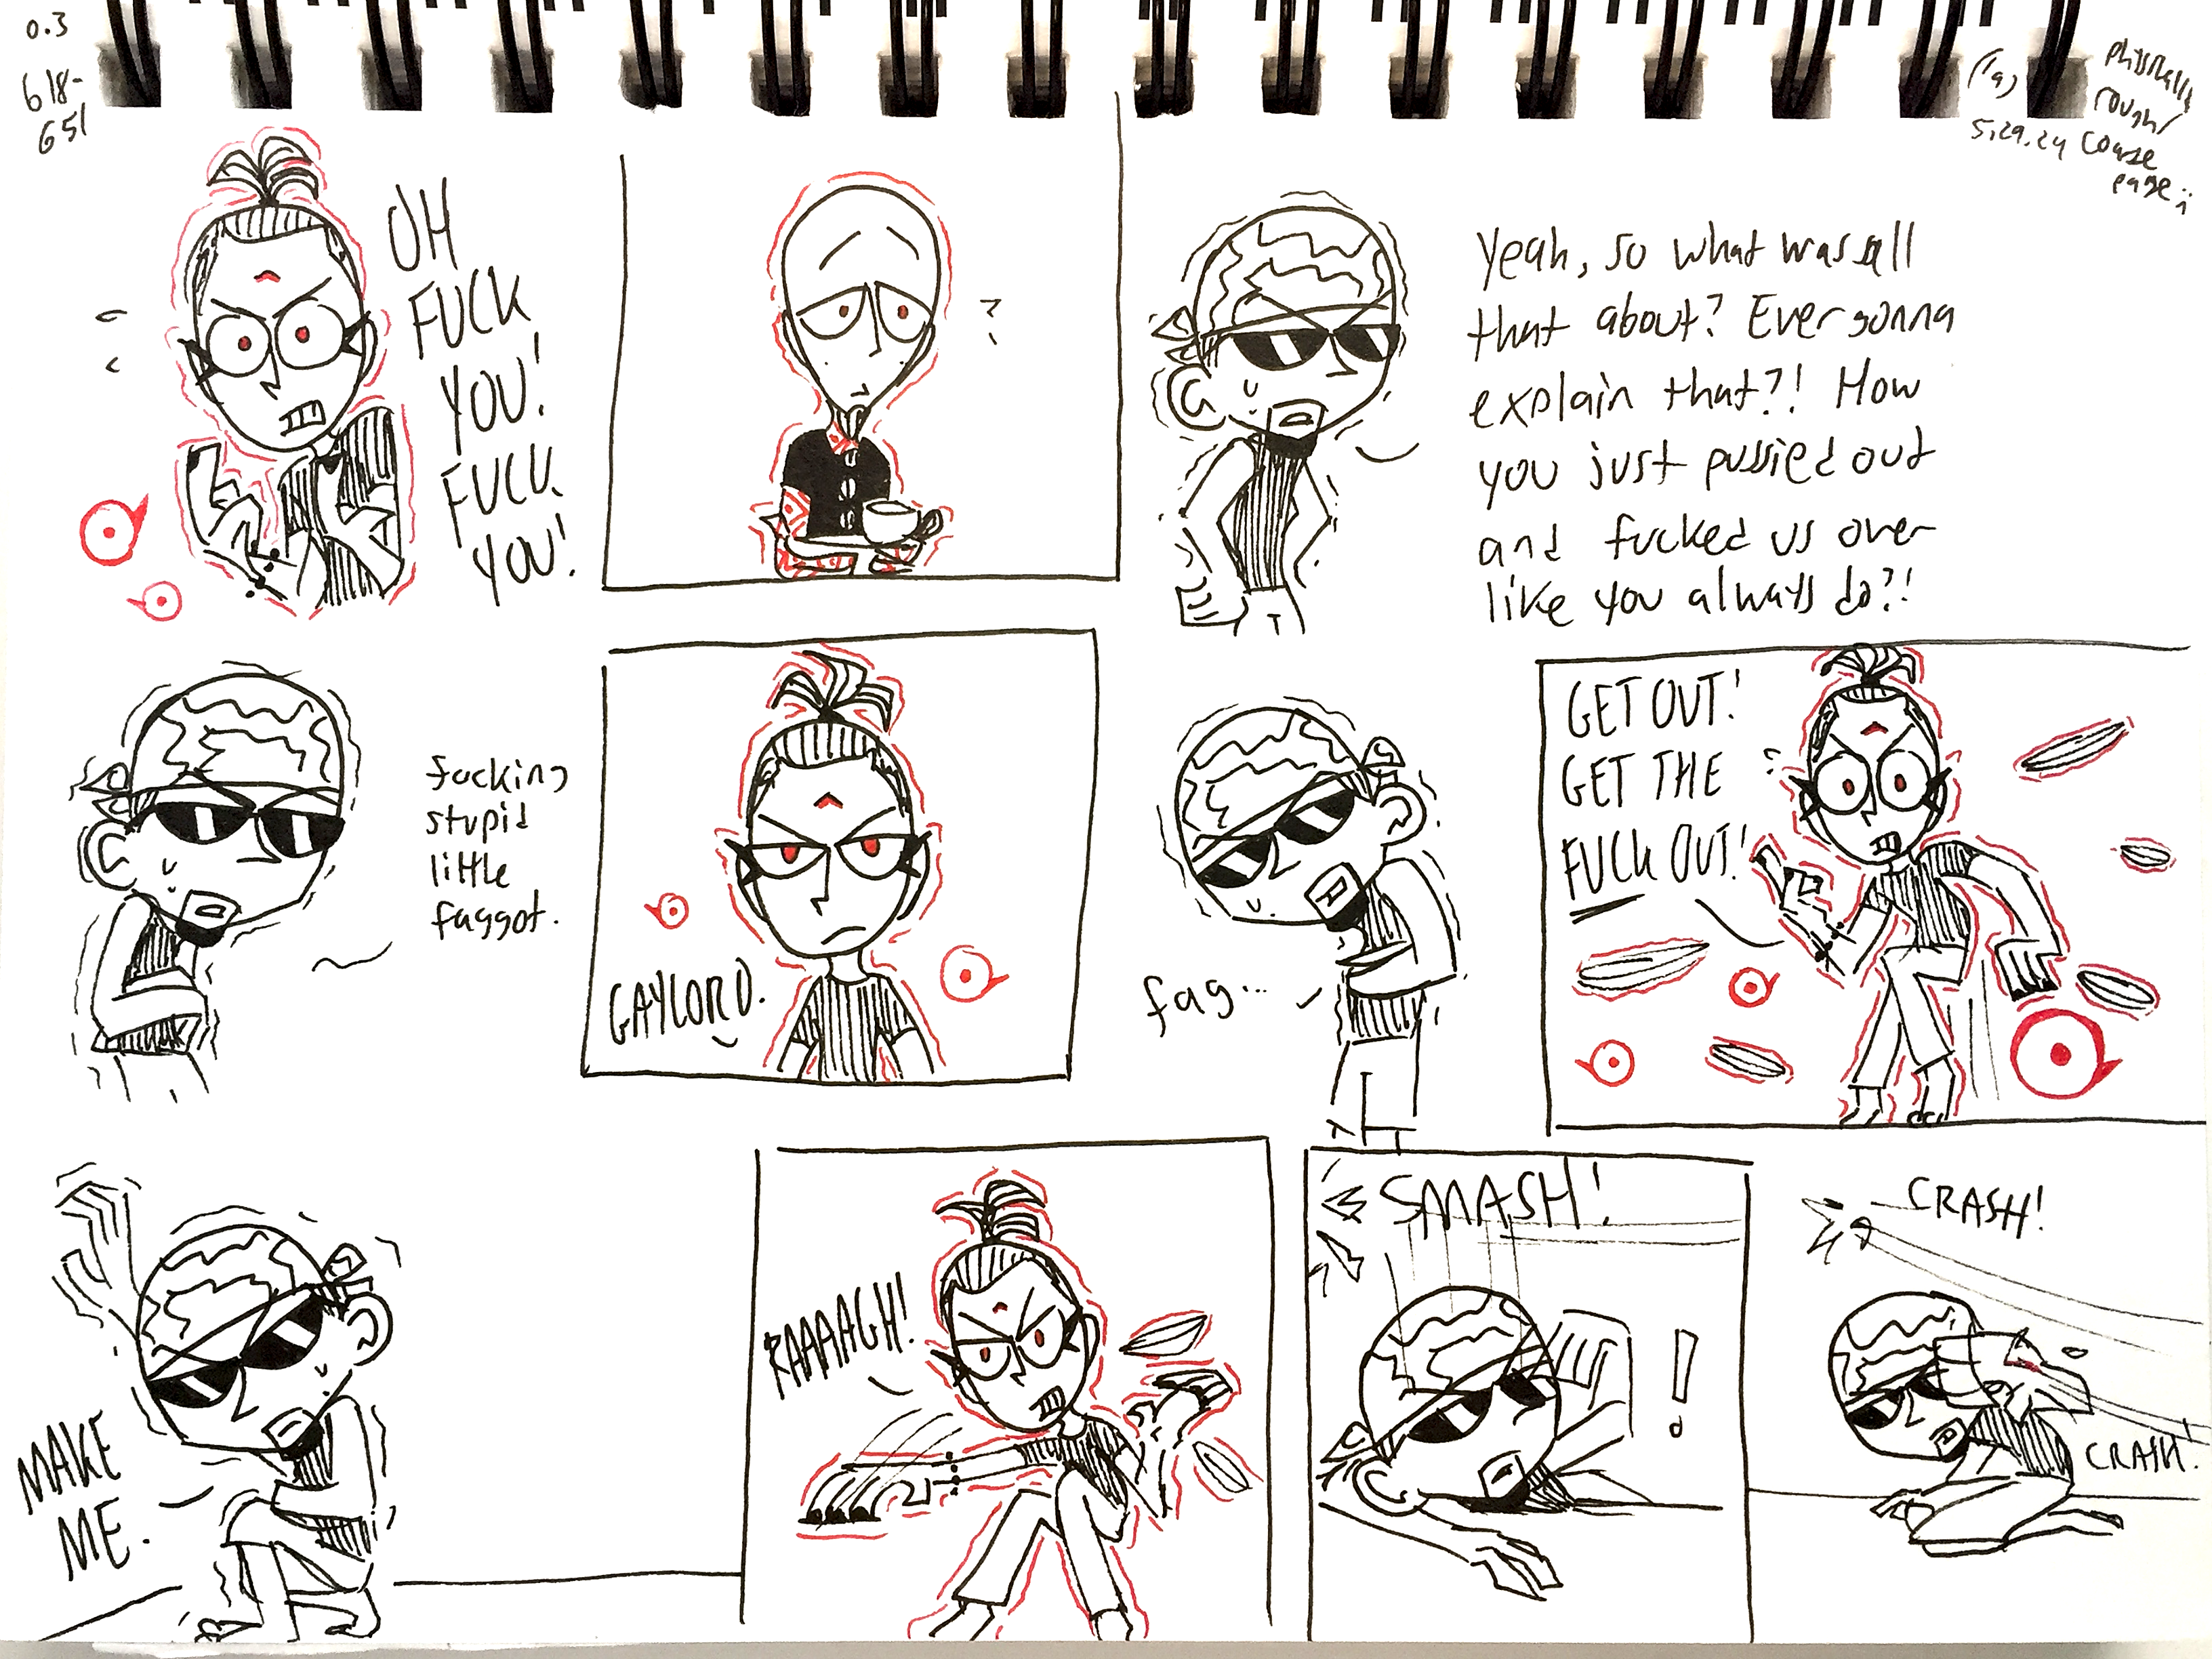 0.3
618-
651
(1a)
5.29.24
physically
rough/
coarse
page;
OH
FUCK
YOU!
FUCK
YOU!
?
Yeah, so what was all
that about? Ever gonna
explain that?! How
you just pussied out
and fucked us over
like you always do?!
fucking
stupid
little
faggot.
GAYLORD.
fag...
GET OUT!
GET THE
FUCK OUT!
MAKE
ME.
RAAAAGH!
SMASH!
!
CRASH!
CRASH!